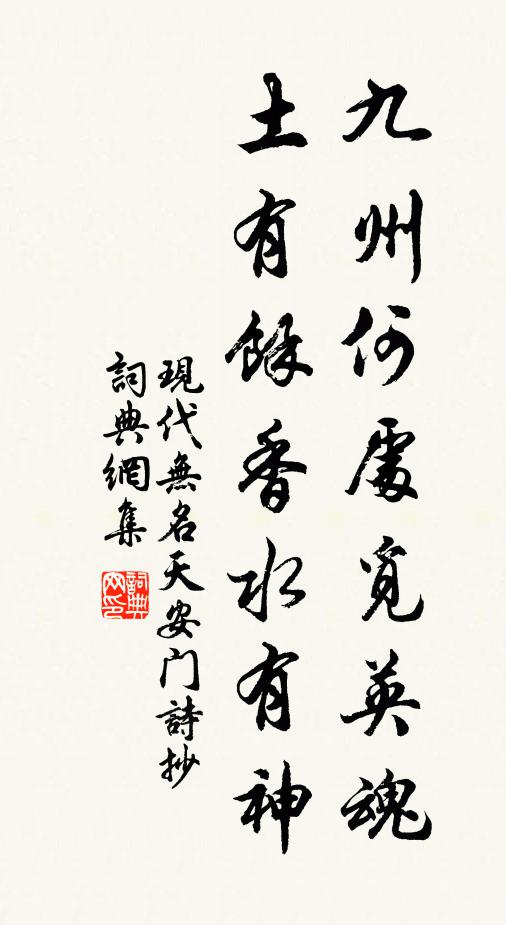 九州何處覓英魂
土有餘香水有神
現代無名天安门詩抄
詞典網集
詞典网印